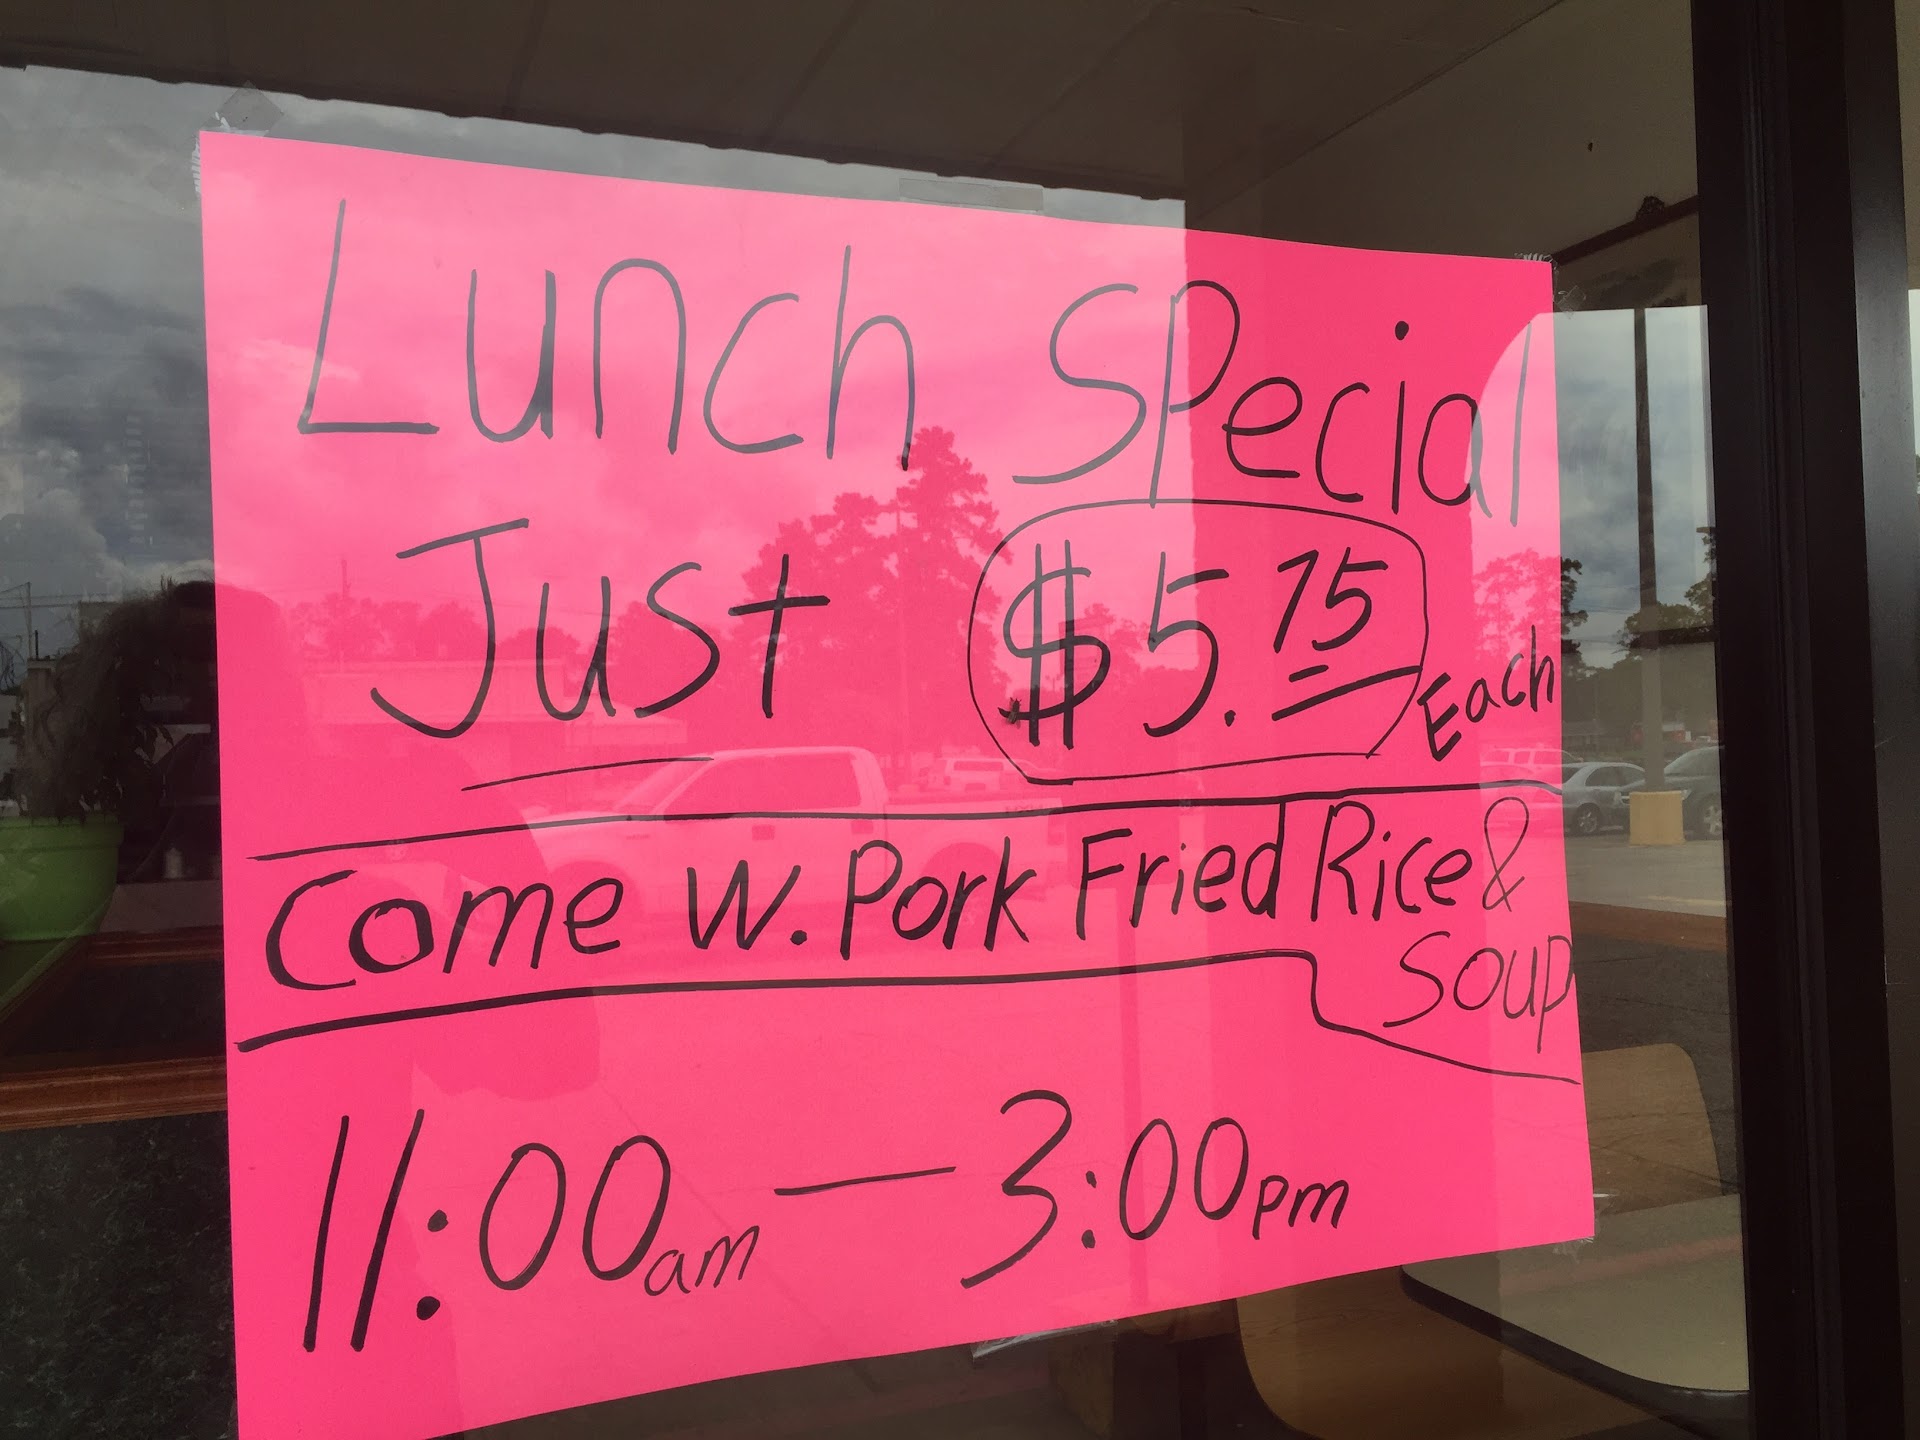 Lunch Special
Just $5.75 Each
Come W. Pork Fried Rice &
Soup
11:00am — 3:00pm